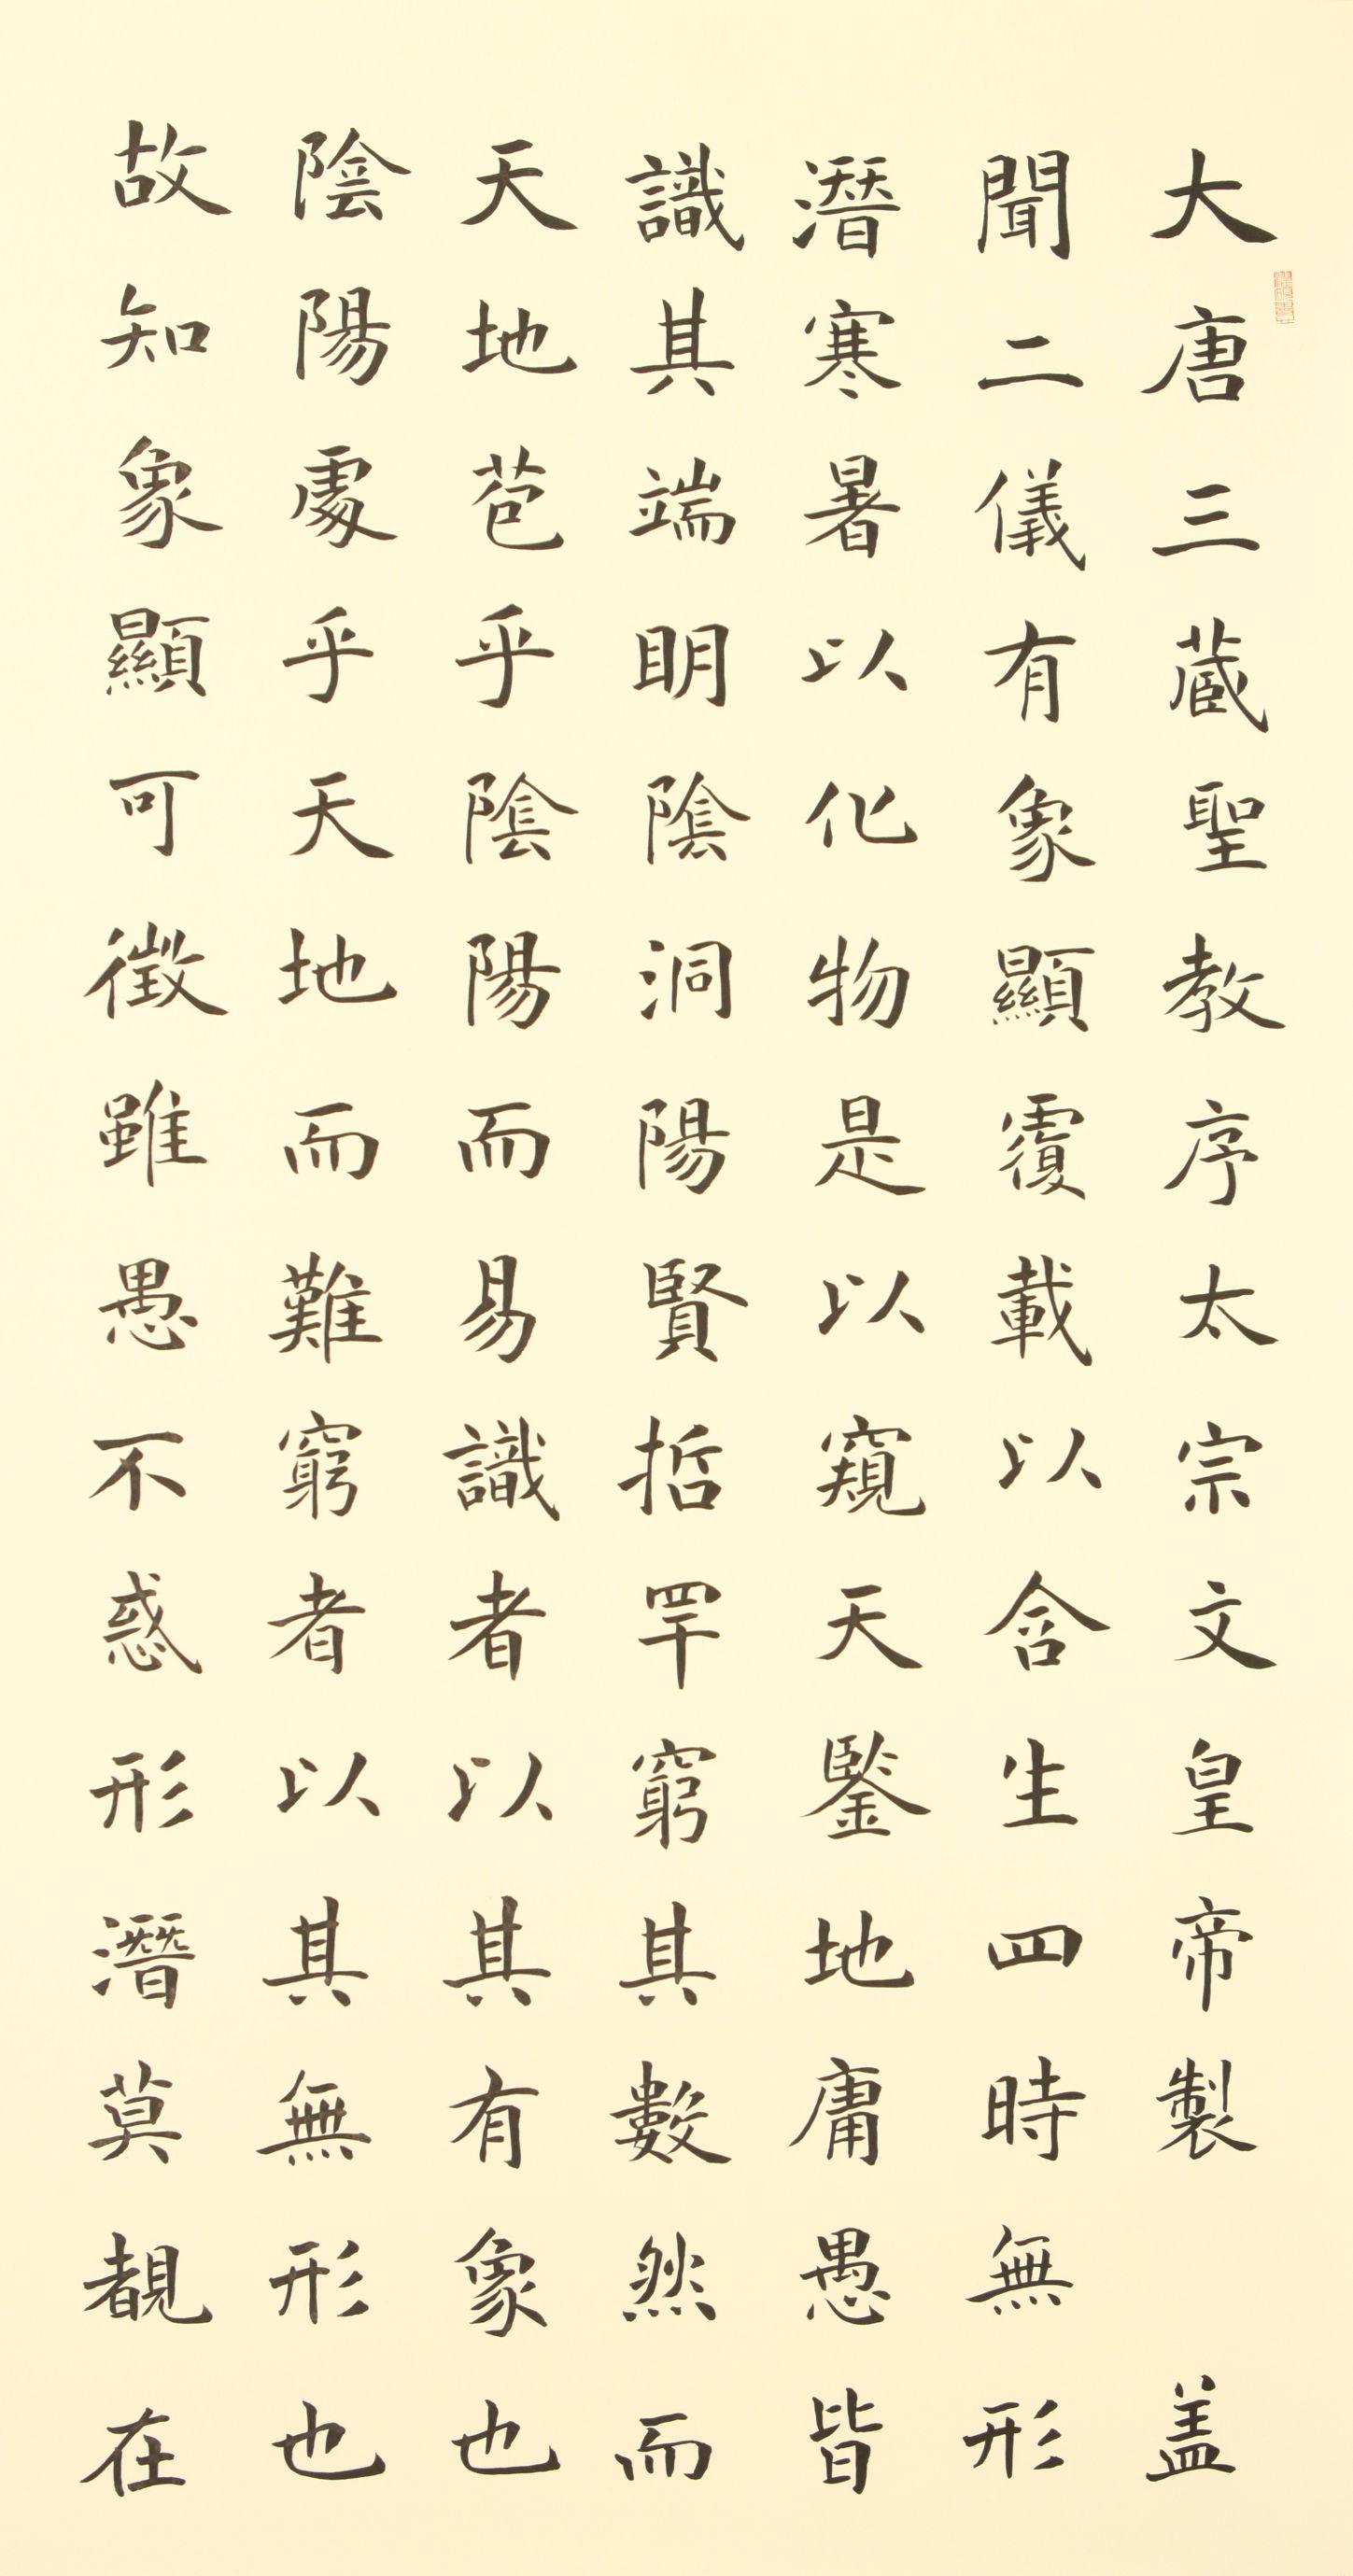 大唐三蔵聖教序太宗文皇帝製　盖
聞二儀有象顯覆載以含生四時無形
潛寒暑以化物是以窺天鑒地庸愚皆
識其端明陰洞陽賢哲罕窮其數然而
天地苞乎陰陽而易識者以其有象也
陰陽處乎天地而難窮者以其無形也
故知象顯可徵雖愚不惑形潛莫覩在